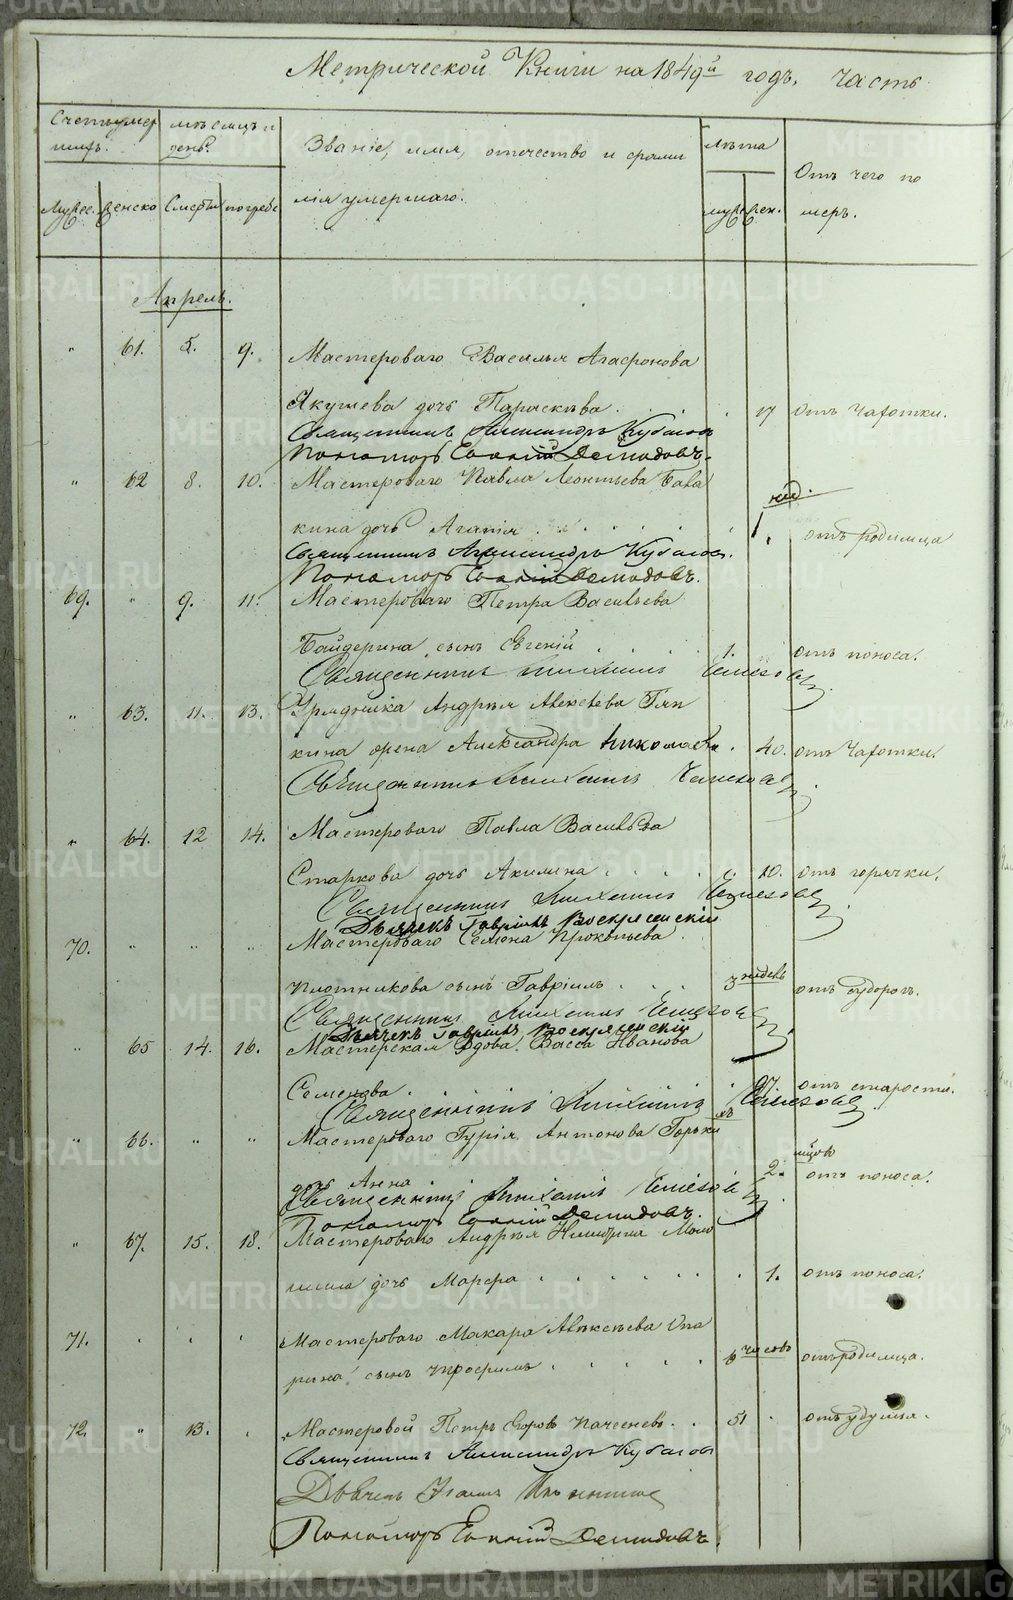 Метрической Книги на 1849й годъ, часть
Счетъ умер
шихъ.
мѣсяцъ и
день.
Званіе, имя, отчество и фами
лія умершаго.
лѣта
Отъ чего по
меръ.
Мужес. Женско Смерти погребе
муж. жен.
Апрель.
" 61. 5. 9. Мастероваго Василья Агафонова
Якушева дочь Параскева . . 17 отъ Чахотки.
Священникъ Александръ
Пономарь Демидовъ.
" 62 8. 10. Мастероваго Павла Леонтьева Бава
нед.
кина дочь Агапія . . . . . . 1. отъ родимца
Священникъ Александръ
Пономарь Демидовъ.
69. " 9. 11. Мастероваго Петра Васильева
Байдерина сынъ Евгеній . . . . 1. " отъ поноса.
Священникъ Михаилъ
" 63. 11. 13. Урядника Андрея Алексѣева Гля
кина жена Александра Николаева . 40. отъ Чахотки.
Священникъ Михаилъ
" 64. 12 14. Мастероваго Павла Васильева
Старкова дочь Акилина . . . . . 10. отъ горячки.
Священникъ Михаилъ
Дьячекъ Гавріилъ Воскресенскій
70. " " " Мастероваго Семена Прокопьева
Плотникова сынъ Гавріилъ . . . 3 недель отъ судорогъ.
Священникъ Михаилъ
Дьячекъ Гавріилъ Воскресенскій
" 65 14. 16. Мастерская Вдова Васса Иванова
Семенова . . . . . . отъ старости.
Священникъ Михаилъ
" 66. " " Мастероваго Гурія Антонова Горьки
дочь Анна 2. отъ поноса.
Священникъ Михаилъ
Пономарь Демидовъ.
" 67. 15. 18. Мастероваго Андрея Никитина
дочь Марфа . . . . . . . 1. отъ поноса.
71. " " " Мастероваго Макара Алексѣева Опа
рина сынъ Трофимъ . . . . . 6 часовъ отъ родимца.
72. " 13. " Мастеровой Петръ Егоровъ . . 51 . отъ удушья.
Священникъ Александръ
Дьячекъ
Пономарь Демидовъ.
METRIKI.GASO-URAL.RU